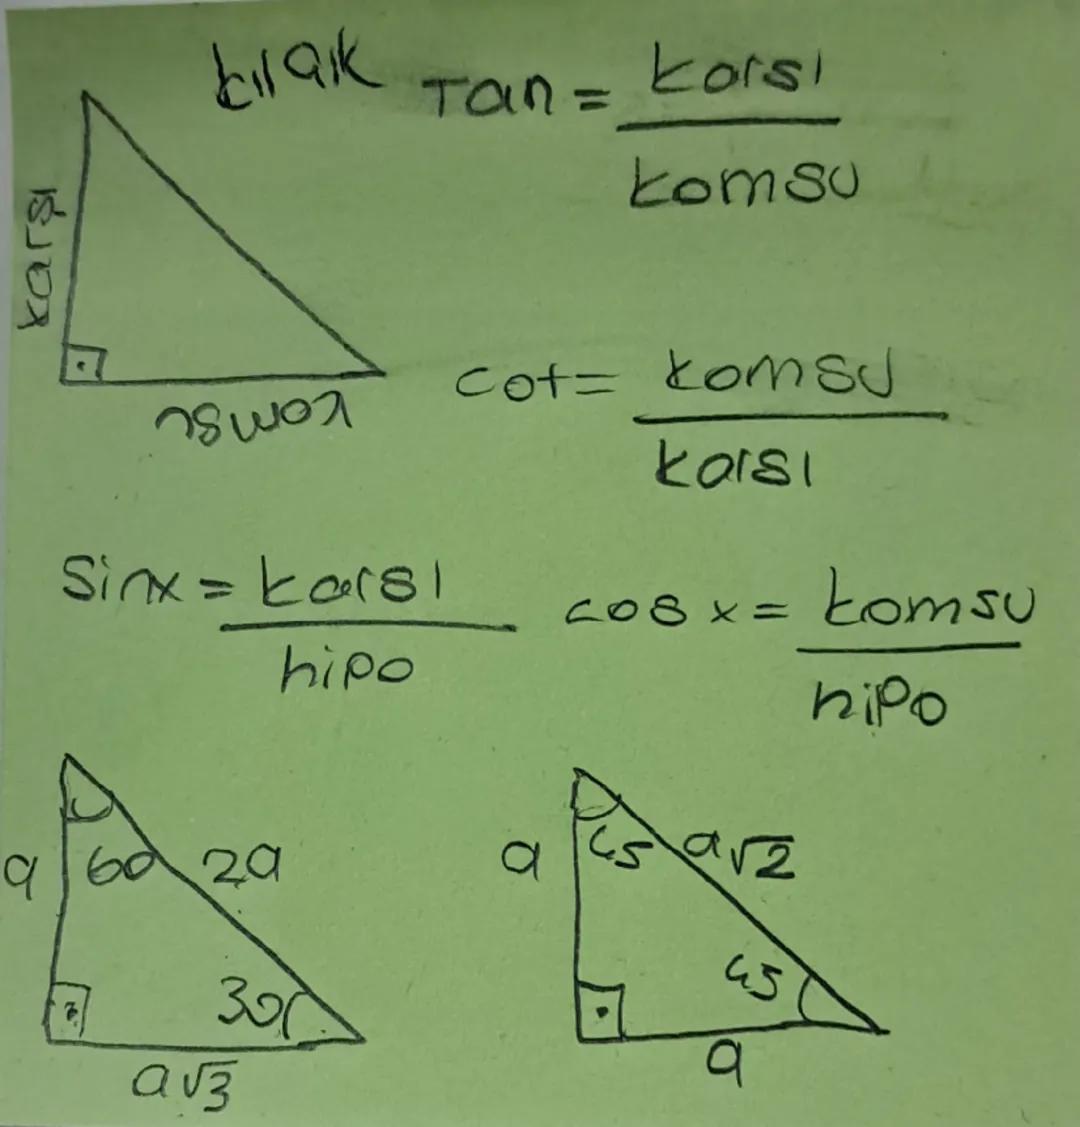 Tan = karsı
komsu
karşı
komsu
cot = komsu
karsı
Sinx = karsı
hipo
cos x = komsu
hipo
a 60 2a
30
a√3
a 45 a√2
45
a